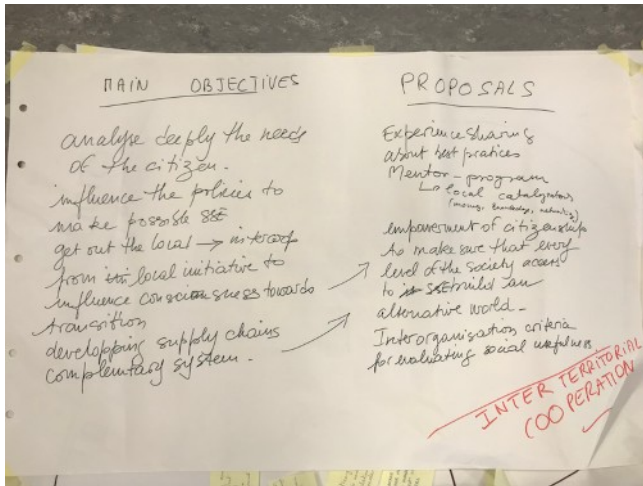 MAIN OBJECTIVES
analyse deeply the needs
of the citizen.
influence the policies to
make possible SSE
get out the local →
from local initiative to
influence consciousness towards
transition
developping supply chains
complemtary system.
PROPOSALS
Experience sharing
about best pratices
Mentor-program
local
empowerment of citizenship
to make sure that every
level of the society access
to SSE build an
alternative world.
Interorganisation criteria
for evaluating social usefulness
INTER TERRITORIAL
COOPERATION